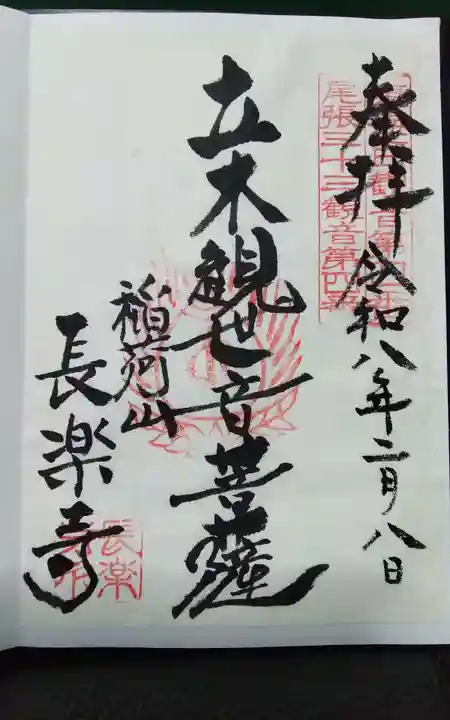 奉拝
令和八年二月八日
尾張三十三観音第四番
立木観世音菩薩
稲荷山
長楽寺
長楽